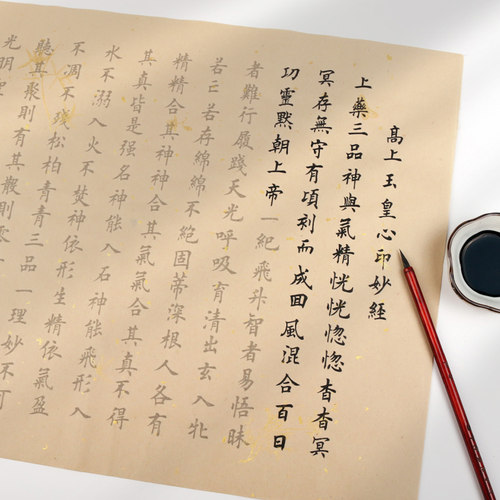 髙上玉皇心印妙經
上藥三品神與氣精恍恍惚惚杳杳冥
冥存無守有頃刻而成囬風混合百日
功靈默朝上帝一紀飛升智者易悟昧
者難行履踐天光呼吸育清出玄入牝
若亡若存綿綿不絕固蒂深根人各有
精精合其神神合其氣氣合其真不得
其真皆是强名神能入石神能飛形入
水不溺入火不焚神依形生精依氣盈
不凋不殘松柏青青三品一理妙不可
聽其聚則有其散則
光明